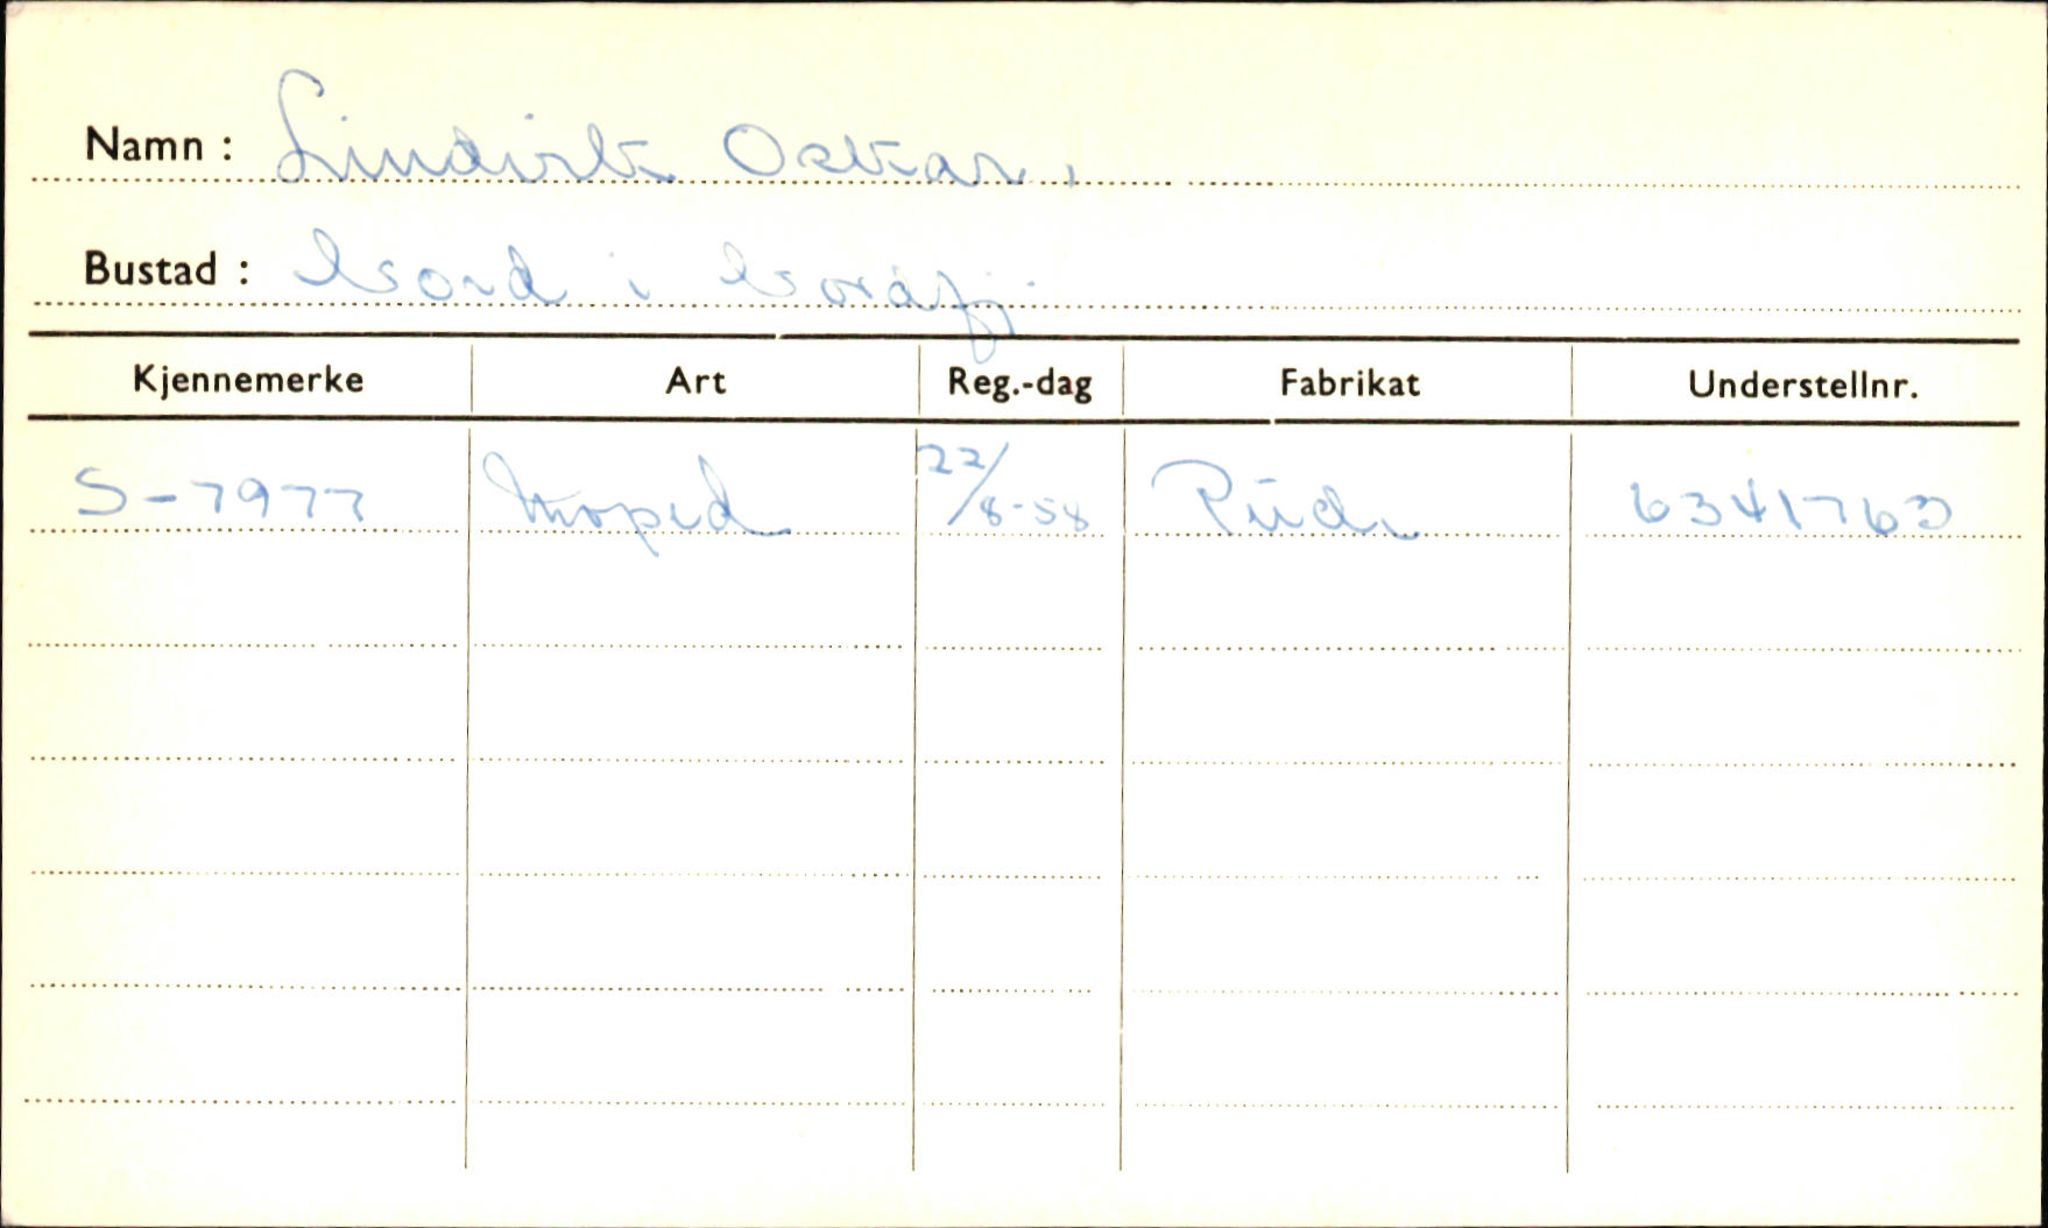 Namn : Lindvik Oskar.
Bustad : Nord i Nordfj.
Kjennemerke Art Reg.-dag Fabrikat Understellnr.
S-7977 Moped 22/8-58 Puch 6341763